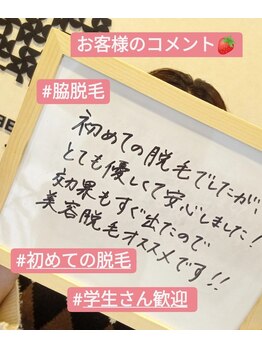 お客様のコメント🍓
#脇脱毛
初めての脱毛でしたが、
とても優しくて安心しました!
効果もすぐ出たので
美容脱毛オススメです!!
#初めての脱毛
#学生さん歓迎